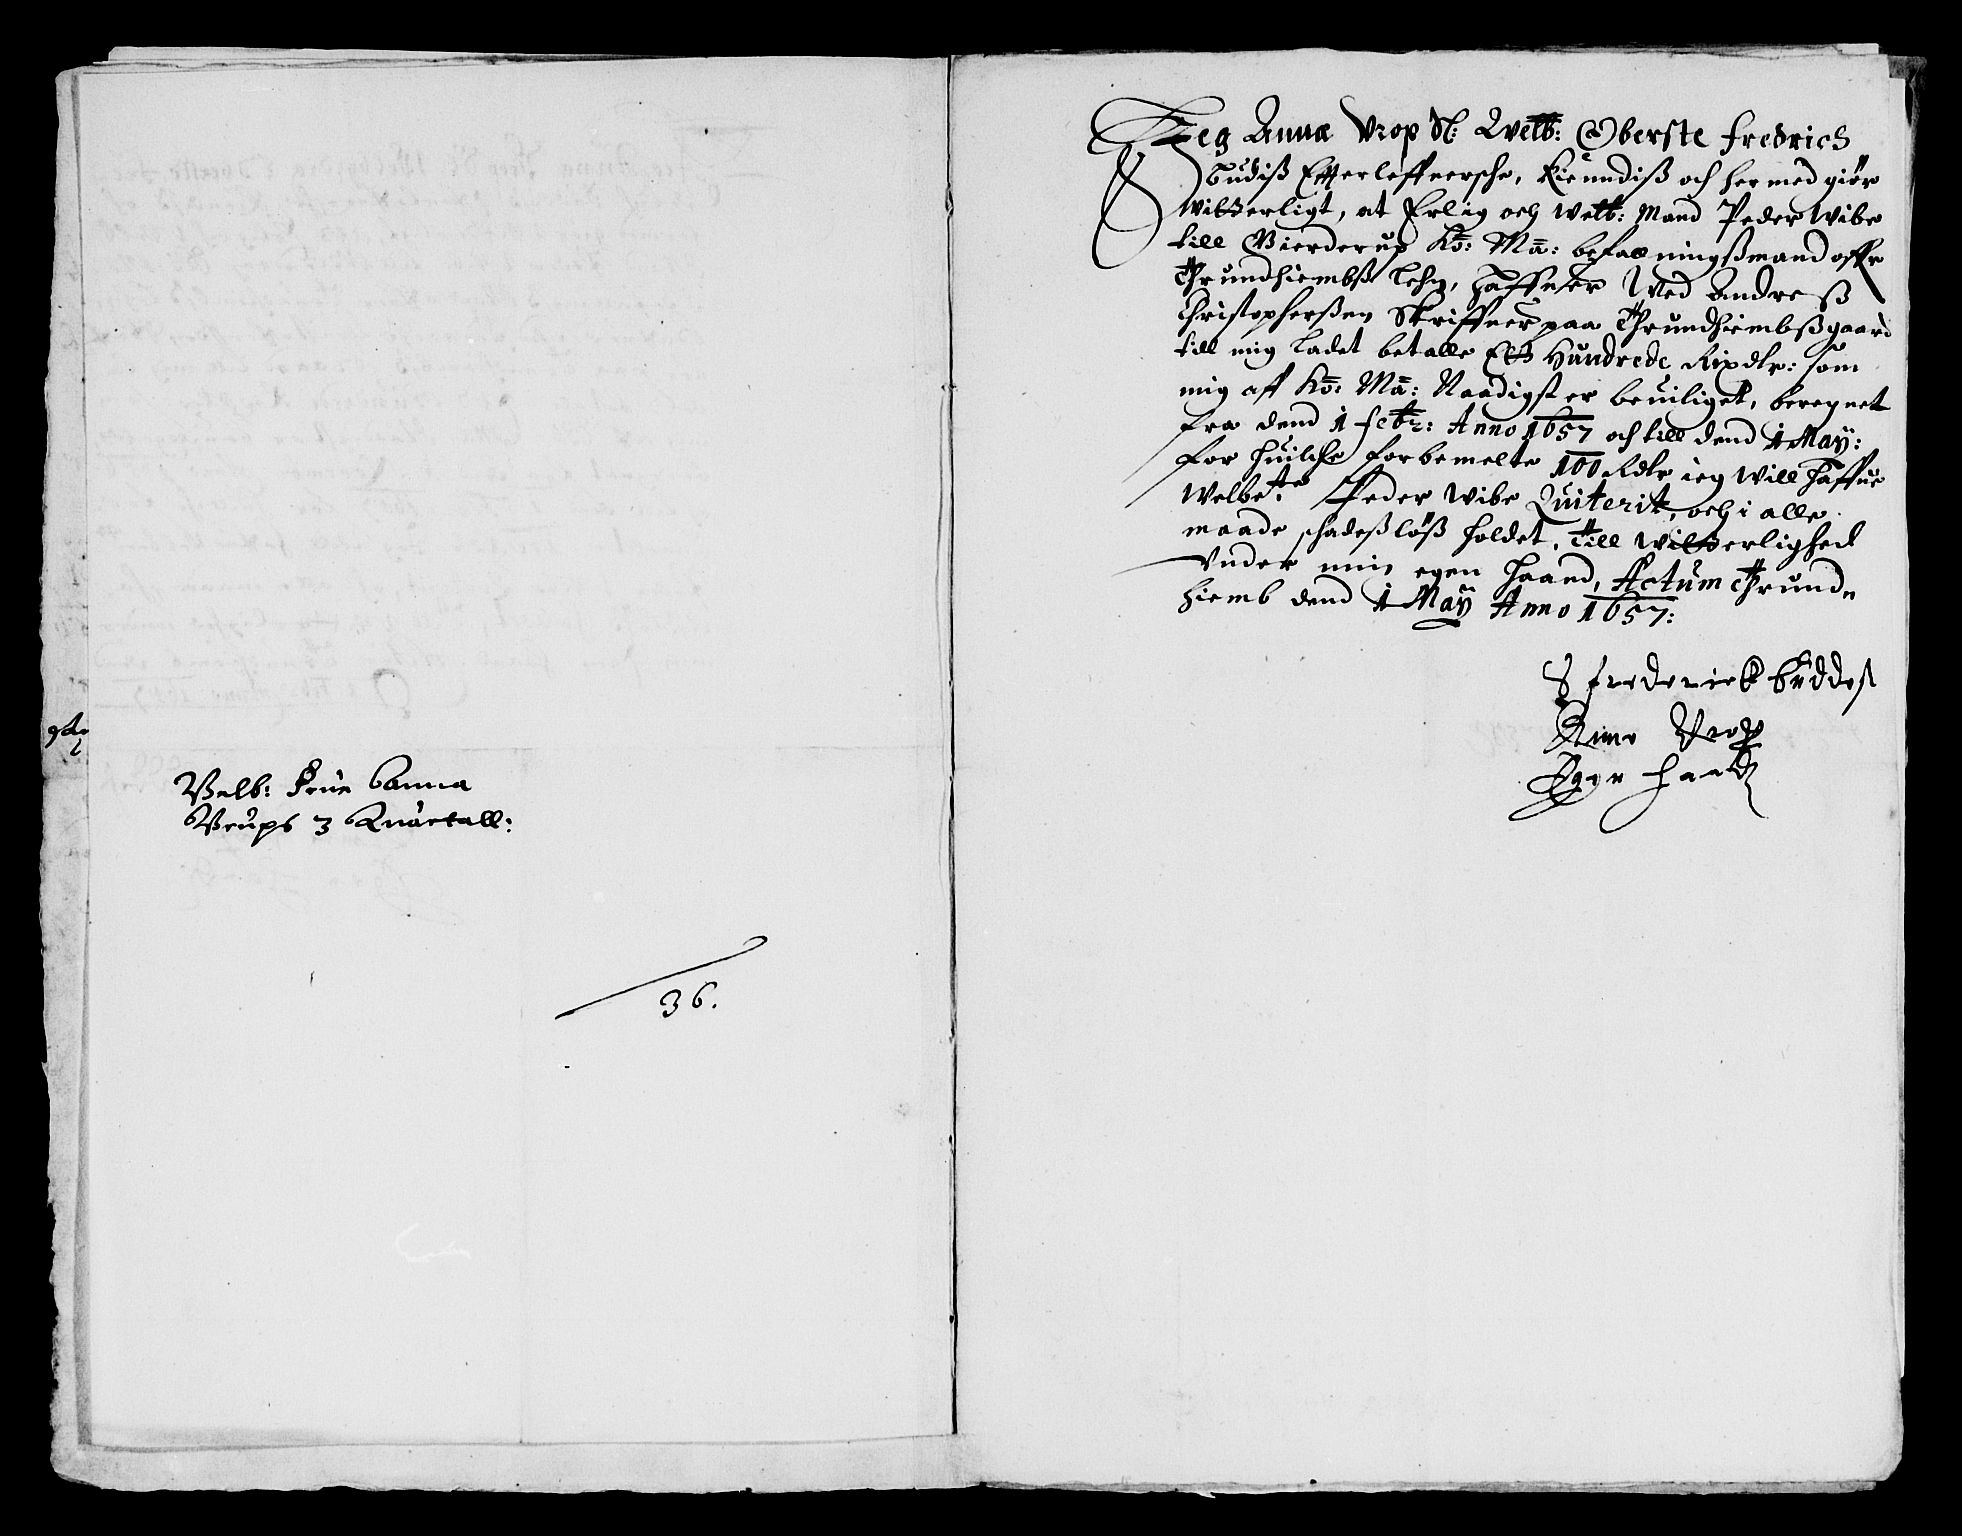 Velb: Frue Anna
Vrups 3 Quartall:
36.
Jeg Anna Vrop Sl: Welb: Oberste Fredrich
Budiß Effterleffuersche, Kiendiß och her med giør
witterligt, at Erlig och Welb: Mand Peder Wibe
till Gierderup Ko: Ma: befalningßmand offr
Thrundhiembß Lehn, haffuer Wed Andreß
Christopherßen Skriffuer paa Thrundhiembßgaard
till mig ladet betalle Ett Hundrede Rixdlr: som
mig aff Ko: Ma: Naadigst er beuiliget, beregnet
fra dend 1 febr: Anno 1657 och till dend 1 May:
for huilche forbemelte 100 Rdlr ieg will haffue
Welbe:te Peder Wibe Quiterit, och i alle
maade schadeßløß holdet, Till witterlighed
Vnder min egen haand, Actum Thrund-
hiemb dend 1 May Anno 1657:
S frederick buddes
Anna Vrop
Egen haand